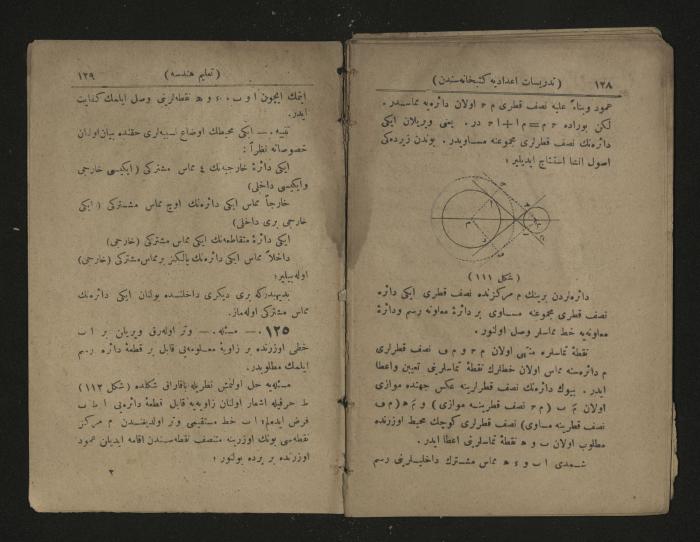 ١٢٨ (تدريسات اعداديه كتبخانه‌سندن)
عمود وبناءً عليه نصف قطرى م ح اولان دائره‌يه مماسدر .
لكن بوراده م ح = م ا + ا ح در . يعنى ويريلان ايكى
دائره‌نك نصف قطرلرى مجموعنه مساويدر . بوندن زيرده‌كى
اصول انشا استنتاج ايديلير ؛
(شكل ١١١)
دائره‌لردن برينك م مركزنده نصف قطرى ايكى دائره
نصف قطرى مجموعنه مساوى بر دائرهٔ معاونه رسم ودائرهٔ
معاونه‌يه خط مماسلر وصل اولنور .
نقطهٔ تماسلره منتهى اولان م ح و م ف نصف قطرلرى
م دائره‌سنه مماس اولان خطلرك نقطهٔ تماسلرينى تعيين واعطا
ايدر . بيوك دائره‌نك نصف قطرلرينه عكس جهتده موازى
اولان م ب (م ح نصف قطرينه موازى) و م ه (م ف
نصف قطرينه مساوى) نصف قطرلرى كوچك محيط اوزرنده
مطلوب اولان ب و ه نقطهٔ تماسلرينى اعطا ايدر .
شمدى ا ب و ء ه مماس مشترك داخليلرينى رسم
(تعليم هندسه) ١٢٩
ايتمك ايچون ا و ب ، ء و ه نقطه‌لرينى وصل ايلمك كفايت
ايدر.
تنبيه . — ايكى محيطك اوضاع نسبيه‌لرى حقنده بيان اولنان
خصوصاته نظراً :
ايكى دائرهٔ خارجيه‌نك ٤ مماس مشتركى (ايكيسى خارجى
وايكيسى داخلى)
خارجاً مماس ايكى دائره‌نك اوچ مماس مشتركى (ايكى
خارجى برى داخلى)
ايكى دائرهٔ متقاطعه‌نك ايكى مماس مشتركى (خارجى)
داخلاً مماس ايكى دائره‌نك يالكز بر مماس مشتركى (خارجى)
اوله‌بيلير؛
بديهيدركه برى ديكرى داخلنده بولنان ايكى دائره‌نك
مماس مشتركى اوله‌ماز.
١٢٥ . — مسئله . — وتر اوله‌رق ويريلان بر ا ب
خطى اوزرنده بر زاويهٔ معلومه‌يى قابل بر قطعهٔ دائره رسم
ايلمك مطلوبدر.
مسئله‌يه حل اولنمش نظريله باقارق شكلده (شكل ١١٢)
ط حرفيله اشعار اولنان زاويه‌يه قابل قطعهٔ دائره‌يى ا ط ب
فرض ايده‌لم؛ ا ب خط مستقيمى وتر اولديغندن م مركز
نقطه‌سى بونك اوزرينه منتصف نقطه‌سندن اقامه ايديلن عمود
اوزرنده بر يرده بولنور ؛